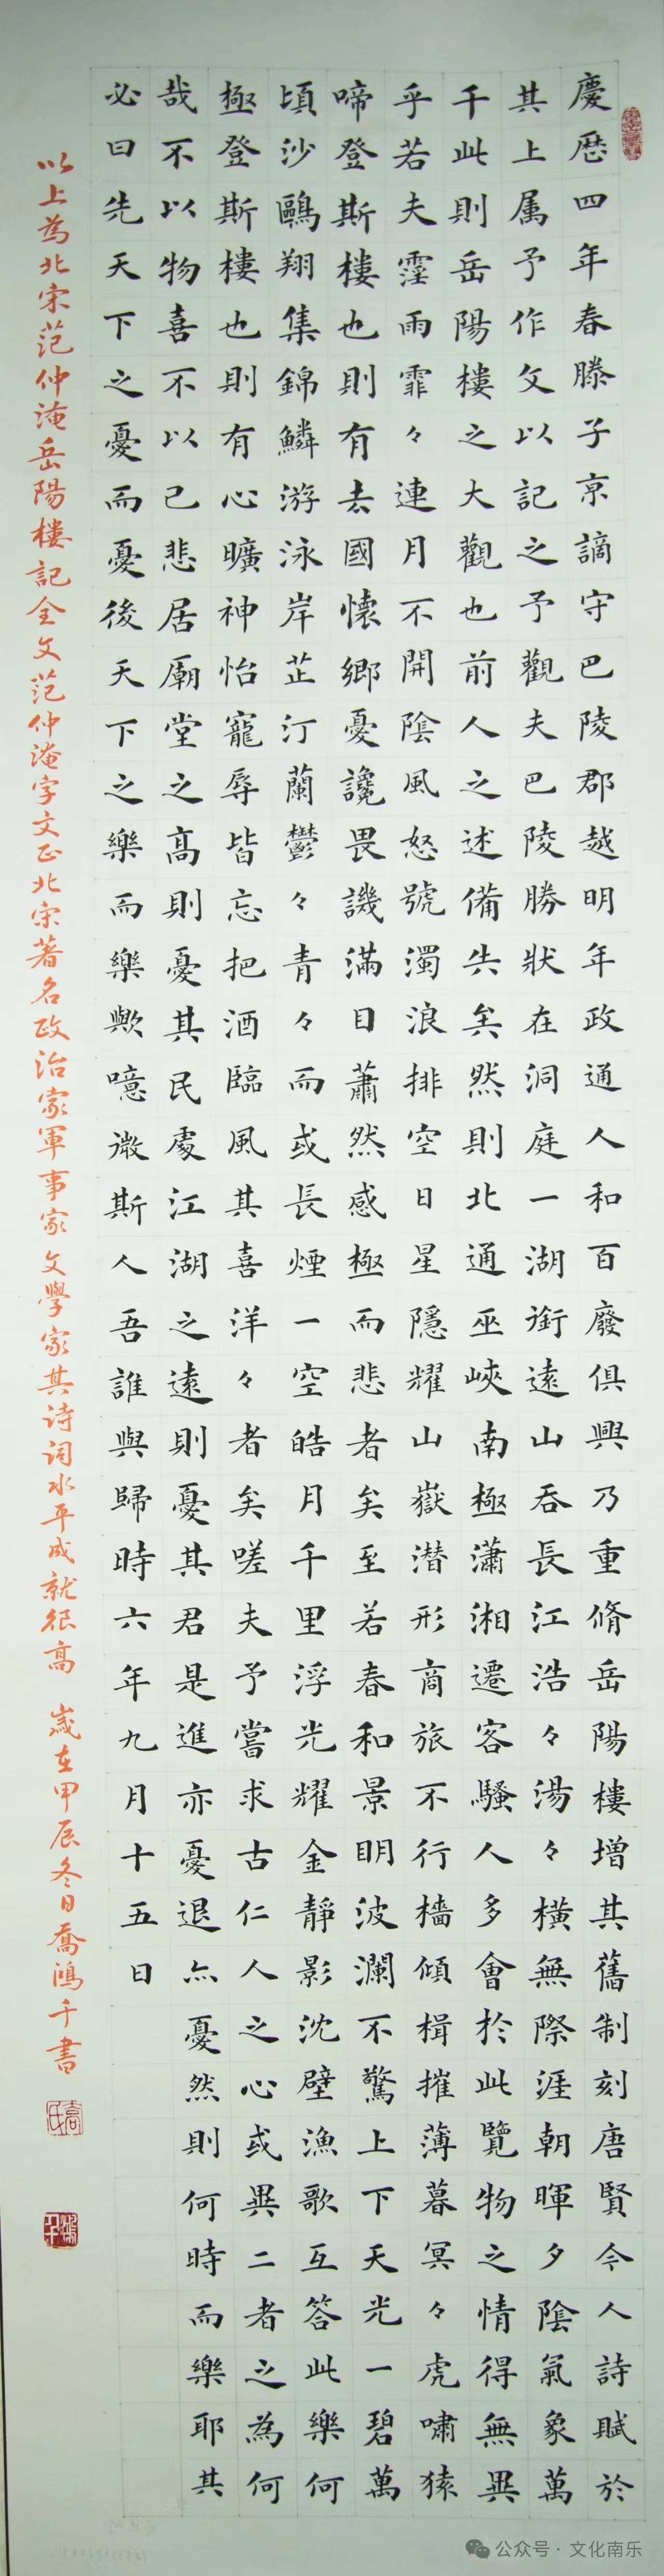 慶歷四年春滕子京謫守巴陵郡越明年政通人和百廢俱興乃重脩岳陽樓增其舊制刻唐賢今人詩賦於
其上属予作文以記之予觀夫巴陵勝狀在洞庭一湖銜遠山吞長江浩々湯々橫無際涯朝暉夕陰氣象萬
千此則岳陽樓之大觀也前人之述備矣然則北通巫峽南極瀟湘遷客騷人多會於此覽物之情得無異
乎若夫霪雨霏々連月不開陰風怒號濁浪排空日星隱耀山嶽潛形商旅不行檣傾楫摧薄暮冥々虎嘯猿
啼登斯樓也則有去國懷鄉憂讒畏譏滿目蕭然感極而悲者矣至若春和景明波瀾不驚上下天光一碧萬
頃沙鷗翔集錦鱗游泳岸芷汀蘭鬱々青々而或長煙一空皓月千里浮光耀金靜影沈壁漁歌互答此樂何
極登斯樓也則有心曠神怡寵辱皆忘把酒臨風其喜洋々者矣嗟夫予嘗求古仁人之心或異二者之為何
哉不以物喜不以己悲居廟堂之高則憂其民處江湖之遠則憂其君是進亦憂退亦憂然則何時而樂耶其
必曰先天下之憂而憂後天下之樂而樂歟噫微斯人吾誰與歸時六年九月十五日
以上為北宋范仲淹岳陽樓記全文范仲淹字文正北宋著名政治家軍事家文學家其诗词水平成就很高 歲在甲辰冬日喬鴻千書
公众号·文化南乐